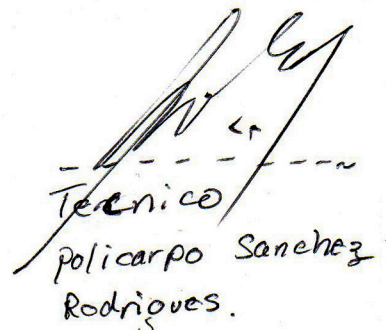 Tecnico
Policarpo Sanchez
Rodrigues.